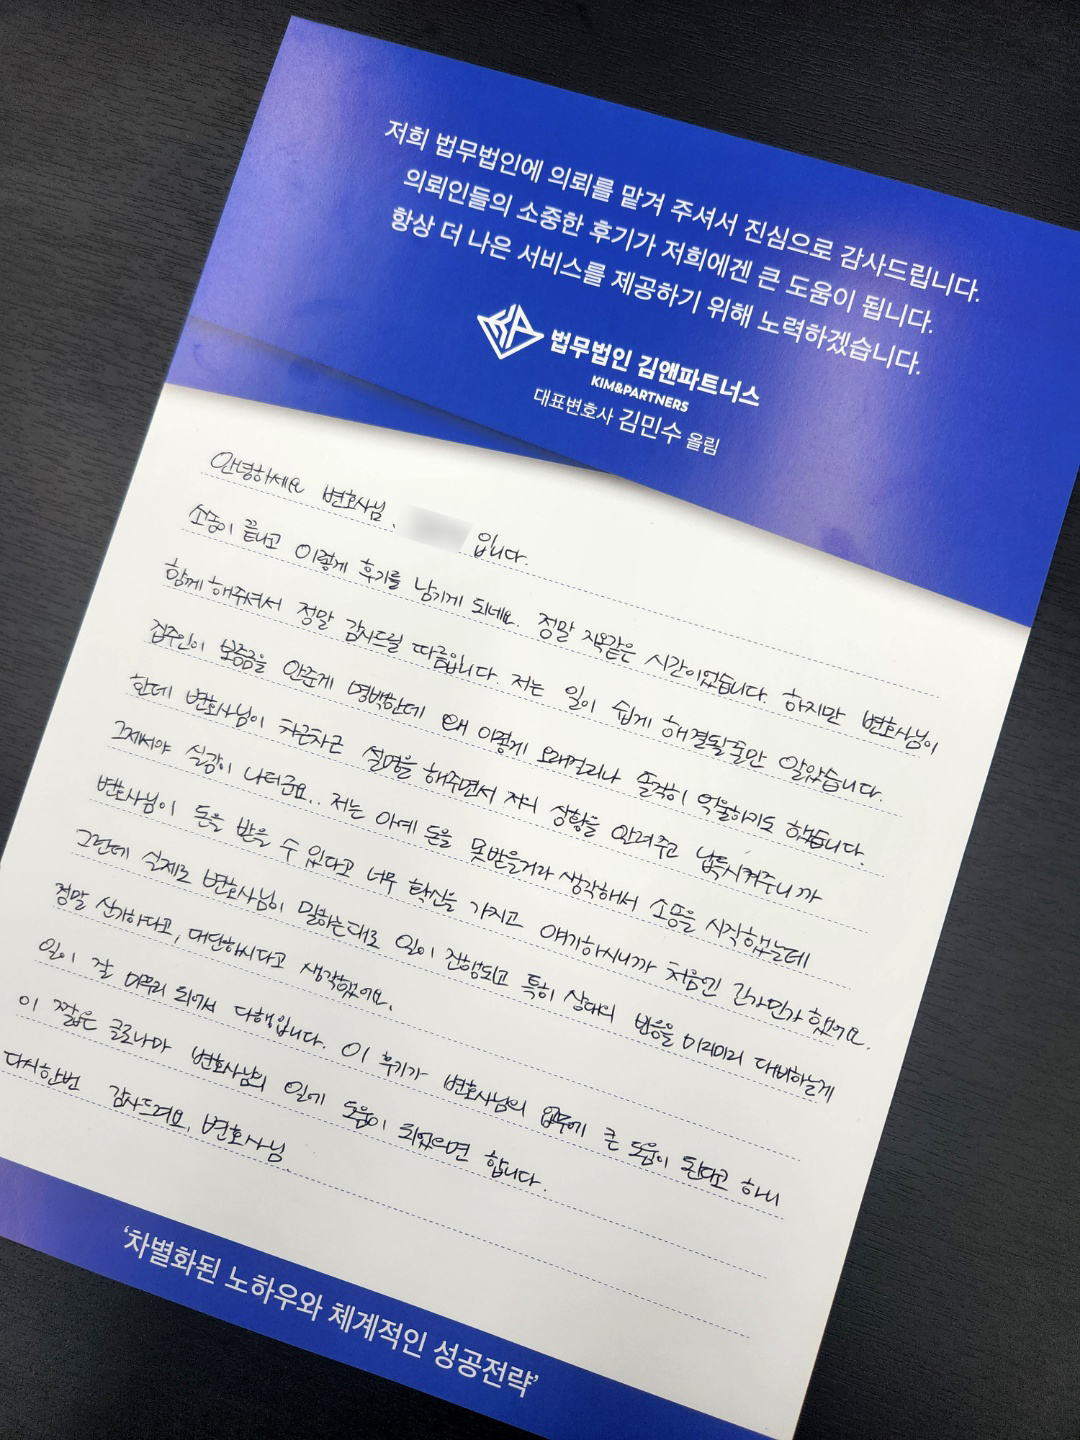 저희 법무법인에 의뢰를 맡겨 주셔서 진심으로 감사드립니다.
의뢰인들의 소중한 후기가 저희에겐 큰 도움이 됩니다.
항상 더 나은 서비스를 제공하기 위해 노력하겠습니다.
법무법인 김앤파트너스
KIM&PARTNERS
대표변호사 김민수 올림
안녕하세요 변호사님. 입니다.
소송이 끝나고 이렇게 후기를 남기게 되네요. 정말 지옥같은 시간이었습니다. 하지만 변호사님이
함께 해주셔서 정말 감사드릴 따름입니다 저는 일이 쉽게 해결될줄만 알았습니다.
집주인이 보증금을 안준게 명백한데 왜 이렇게 오래걸리나 솔직히 억울하기도 했습니다.
한데 변호사님이 차근차근 설명을 해주면서 저의 상황을 알려주고 납득시켜주니까
그제서야 실감이 나더군요.. 저는 아예 돈을 못받을거라 생각해서 소송을 시작했는데
변호사님이 돈을 받을 수 있다고 너무 확신을 가지고 얘기하시니까 처음엔 긴가민가 했어요.
그런데 실제로 변호사님이 말하는대로 일이 진행되고 특히 상대의 반응을 미리미리 대비하는게
정말 신기하다고, 대단하시다고 생각했어요.
일이 잘 마무리 되어서 다행입니다. 이 후기가 변호사님의 업무에 큰 도움이 된다고 하니
이 짧은 글로나마 변호사님의 일에 도움이 되었으면 합니다.
다시한번 감사드려요, 변호사님.
'차별화된 노하우와 체계적인 성공전략'